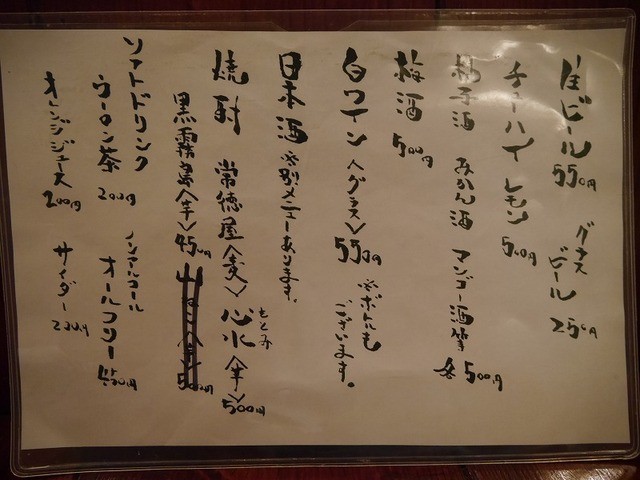 生ビール 550円 グラスビール 250円
チューハイ レモン 500円
柚子酒 みかん酒 マンゴー酒等 各500円
梅酒 500円
白ワイン〈グラス〉 550円 ※ボトルもございます。
日本酒 ※別メニューあります。
焼酎 常徳屋〈麦〉 心水〈芋〉 500円
もとみ
黒霧島〈芋〉 450円
ソフトドリンク ノンアルコール
ウーロン茶 200円 オールフリー
オレンジジュース 200円 サイダー 200円